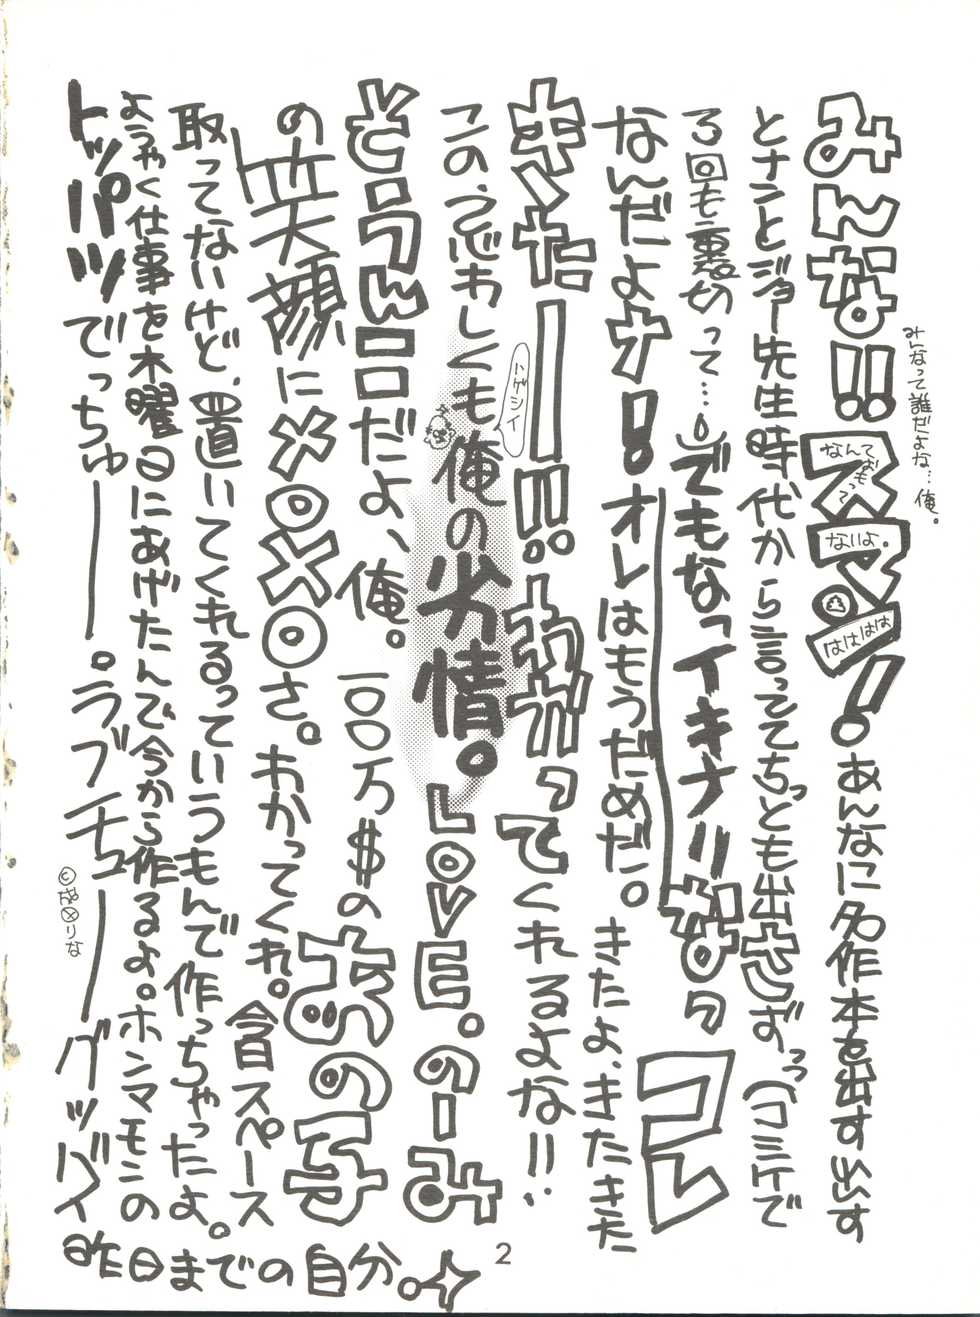 みんな!!スマン!。あんなに名作本を出す出す
みんなって誰だよな…俺。
なんておもって
ないよ。
はははは
とナントジョー先生時代から言っててちっとも出さずっっ(コミケで
3回も裏切って…。)でもなっイキナリなのッコレ
なんだよナ!オレはもうだめだ。きたよ、きたきた
キターーー!!!わかってくれるよな!!
この、うぶわしくも俺の劣情。LOVE。のーみ
ハゲシイ
そうんここだよ、俺。百万$のあの子
の笑顔に×○×○さ。わかってくれ。今日スペース
取ってないけど、置いてくれるっていうもんで作っちゃったよ。
ようやく仕事を木曜日にあげたんで今から作るよ。ホンマモンの
トッパツでっちゅ――。ラブチュ――グッバイ
昨日までの自分。
2